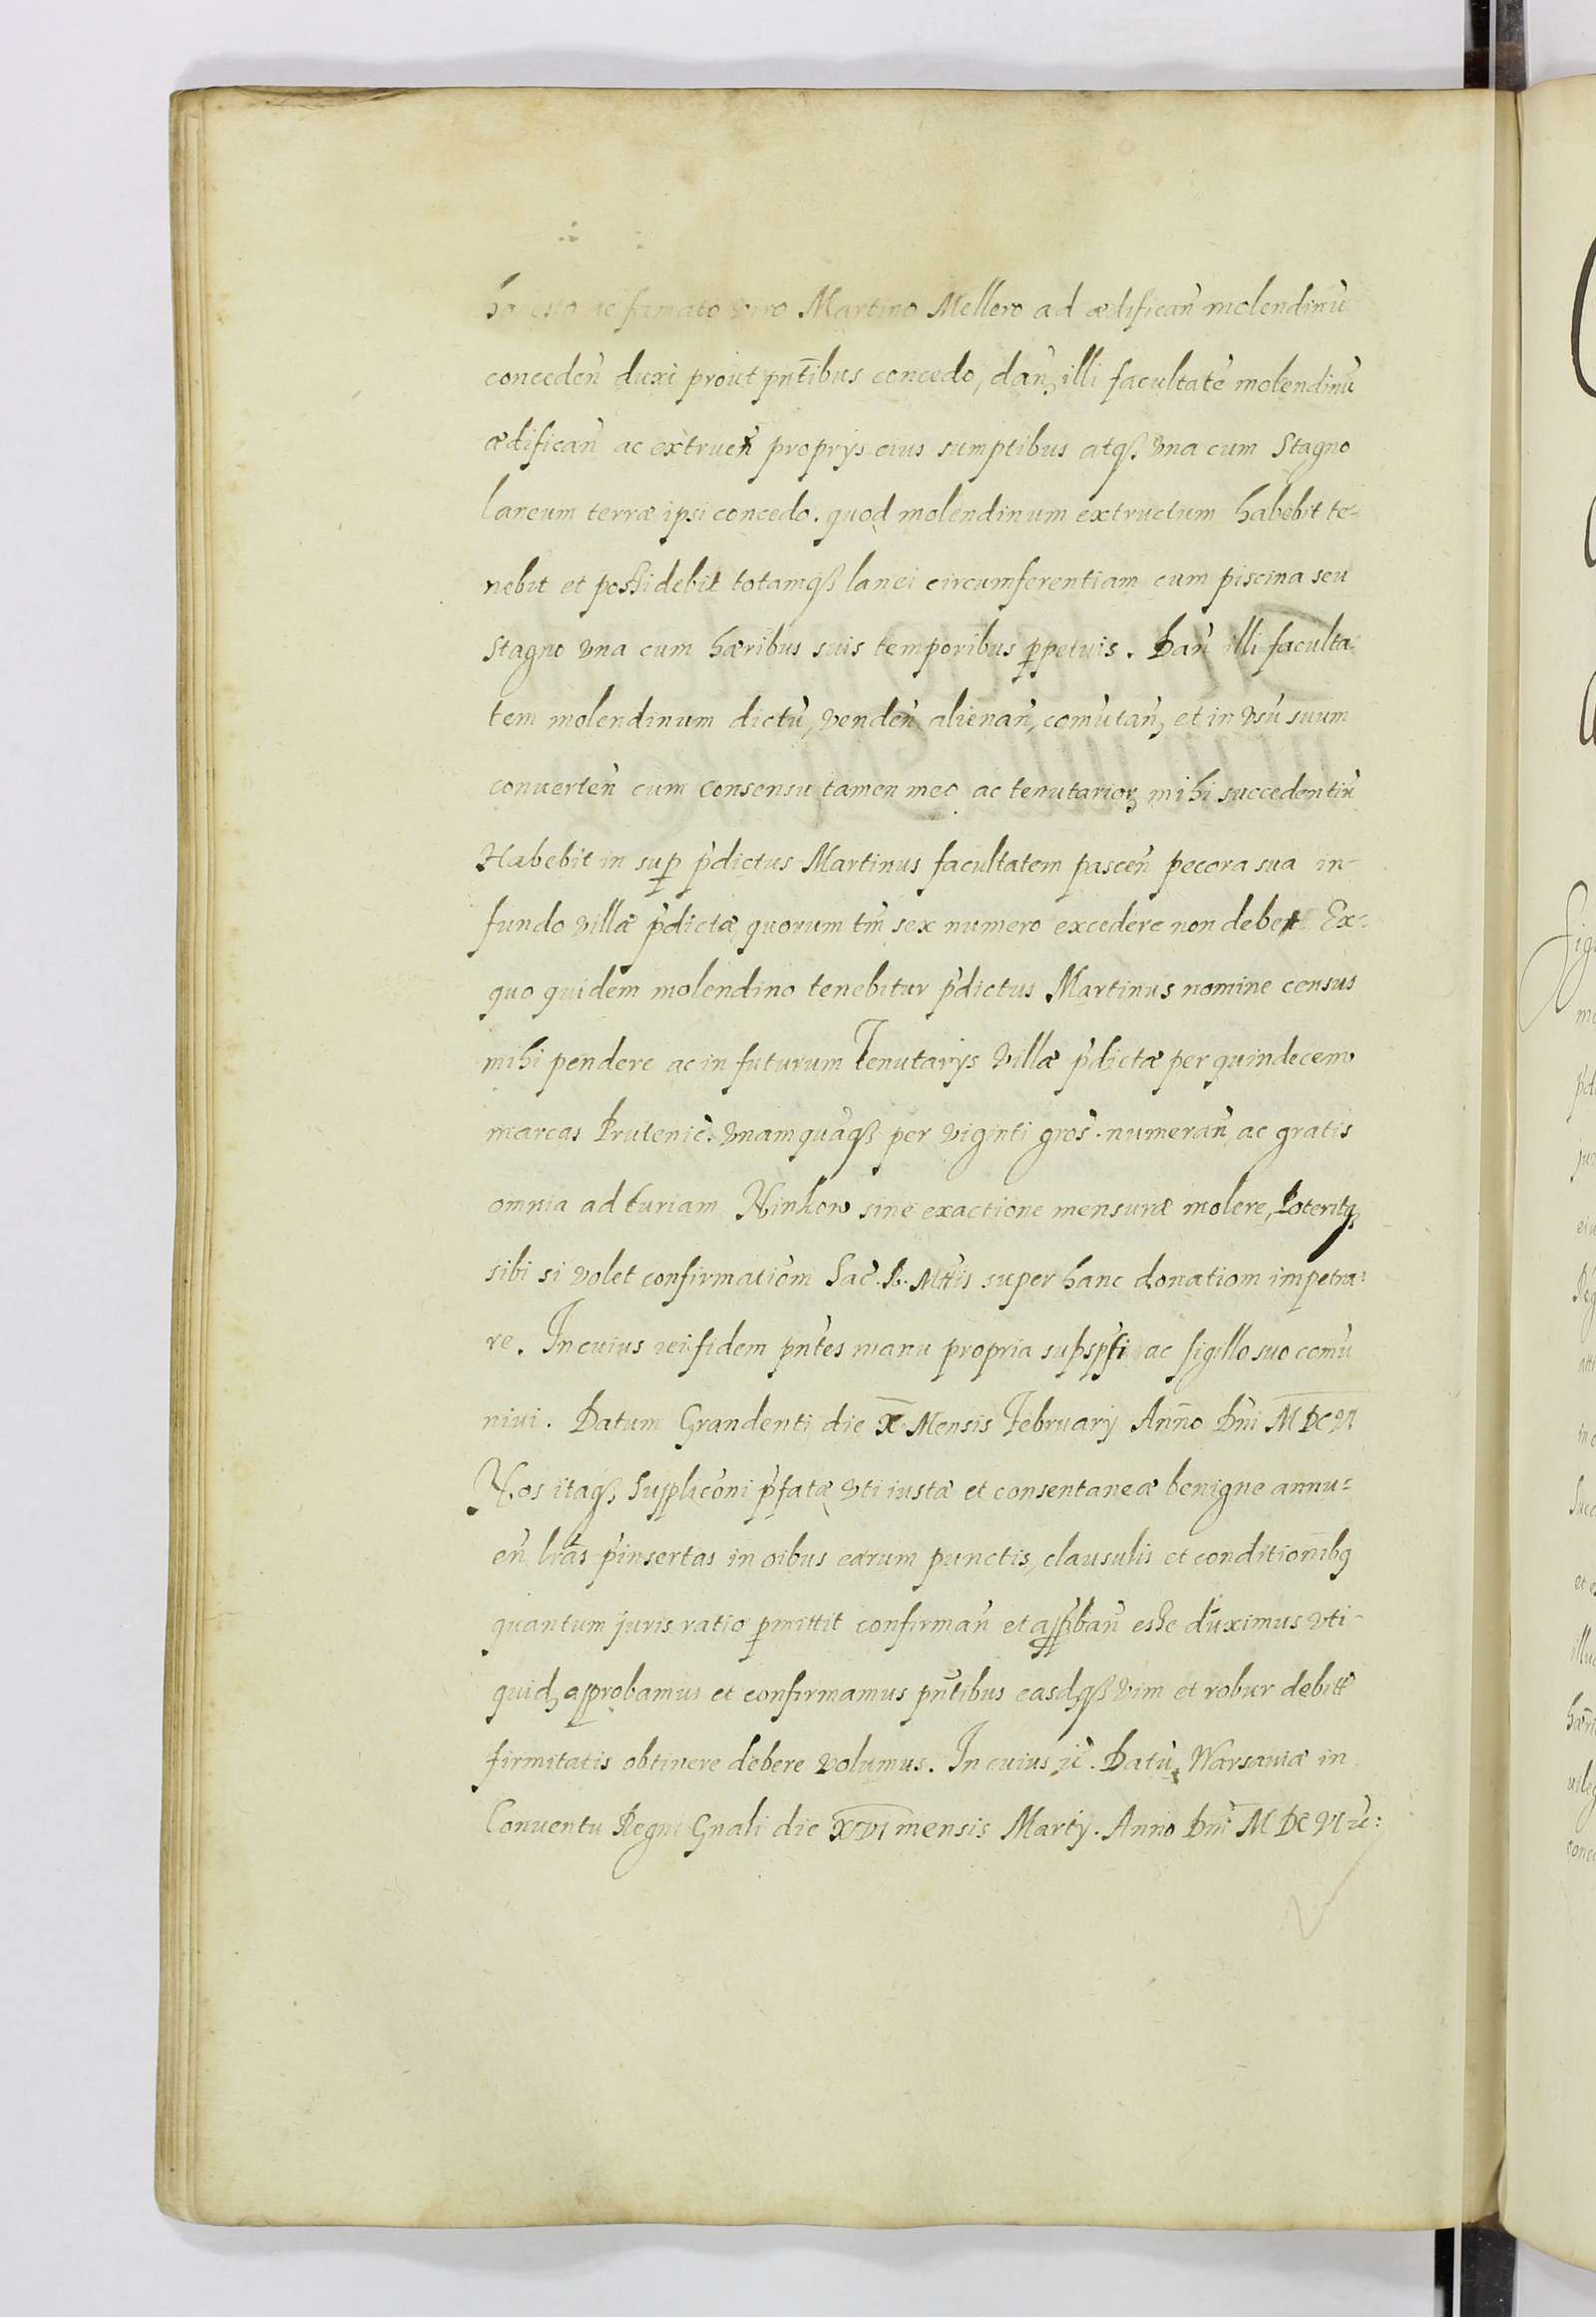 honesto ac famato viro Martino Mellero ad ædifican̄ molendinū
conceden̄ duxi prout pn̄tibus concedo, dan̄, illi facultatē molendinū
ædifican̄ ac extruen̄ proprijs eius sumptibus atqꝫ vna cum Stagno
laneum terræ ipsi concedo. quod molendinum extructum habebit te-
nebit et possidebit totamqꝫ lanei circumferentiam cum piscina seu
Stagno vna cum hæribus suis temporibus ꝑpetuis. Dan̄ illi faculta
tem molendinum dictū, venden̄ alienan̄, comūtan̄, et in vsū suum
conuerten̄ cum consensu tamen meo ac tenutarioꝝ mihi succedentiū
Habebit in suꝑ p̄dictus Martinus facultatem pascen̄ pecora sua in-
fundo villæ p̄dictæ quorum tm̄ sex numero excedere non debet Ex-
quo quidem molendino tenebitur p̄dictus Martinus nomine census
mihi pendere ac in futurum Tenutarijs villæ p̄dictæ per quindecem
marcas Prutenic̄. vnamquāqꝫ per viginti gros̄. numeran̄ ac gratis
omnia ad Curiam Ninkow sine exactione mensuræ molere, Poteritqꝫ
sibi si volet confirmatiom̄ Sac̄. R. Mttis super hanc donatiom impetra-
re. In cuius rei fidem pn̄tes manu propria subsp̄si ac sigillo suo comū
niui. Datum Grandenti die X Mensis February Anno Dn̄i MDCVI
Nos itaqꝫ Supplicōni p̄fatæ vti iustæ et consentaneæ benigne annu-
en̄ lrās p̄insertas in oībus earum punctis, clausulis et conditionibꝫ
quantum juris ratio ꝑmittit confirman̄ et app̄ban̄ esse duximus vti-
quidꝫ approbamus et confirmamus pn̄tibus easdqꝫ vim et robur debitæ
firmitatis obtinere debere volumus. In cuius rē. Datū Warsauiæ in
Conuentu Regni Gn̄ali die XVI mensis Martij. Anno Dn̄i MDCVI etc: